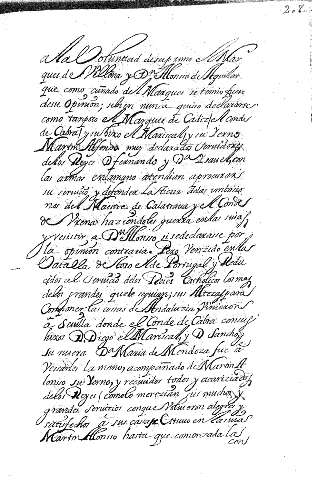 a la Voluntad de supremo el Mar
ques de Villena y Dn. Alonso de Aguilar
que como cuñado del Marques se tenia gran
de su Opinion; si bien nunca quiso declararse
como tanpoco el Marques de Cadiz el Conde
de Cabra y su hixo el Mariscal; y su Yerno
Martin Alonso muy declarados servidores
de los Reyes D. fernando y Da. Isauel, con
las armas en la mano atendian a procurar
su servicio y defender la tierra de las
nas del Maestre de Calatraua y el Conde
de Vrena haziendoles guerra en las suias
y resistir a Dn. Alonso si se declarase por
la opinion contraria. Pero Venzido en la
Batalla de Toro el de Portugal y Redu
cidos al servicio de los Reyes Catholicos los mas
de los grandes que lo seguian; sus Altezas para
componer las cosas de Andaluzia Vinieron
a Sevilla donde el Conde de Cabra con sus
hixos D. Diego el Mariscal y D. Sancho y
su nuera Da. Maria de Mendoza fue a
Vesarles la mano, acompañado de Martin A
lonso su Yerno, y reciuidos todos y acariziados
de los Reyes (como lo merezian sus muchos y
grandes servicios con que Voluieron alegres y
satisfechos a sus casas. Estuvo en la suia
Martin Alonso hasta que comenzada la
con